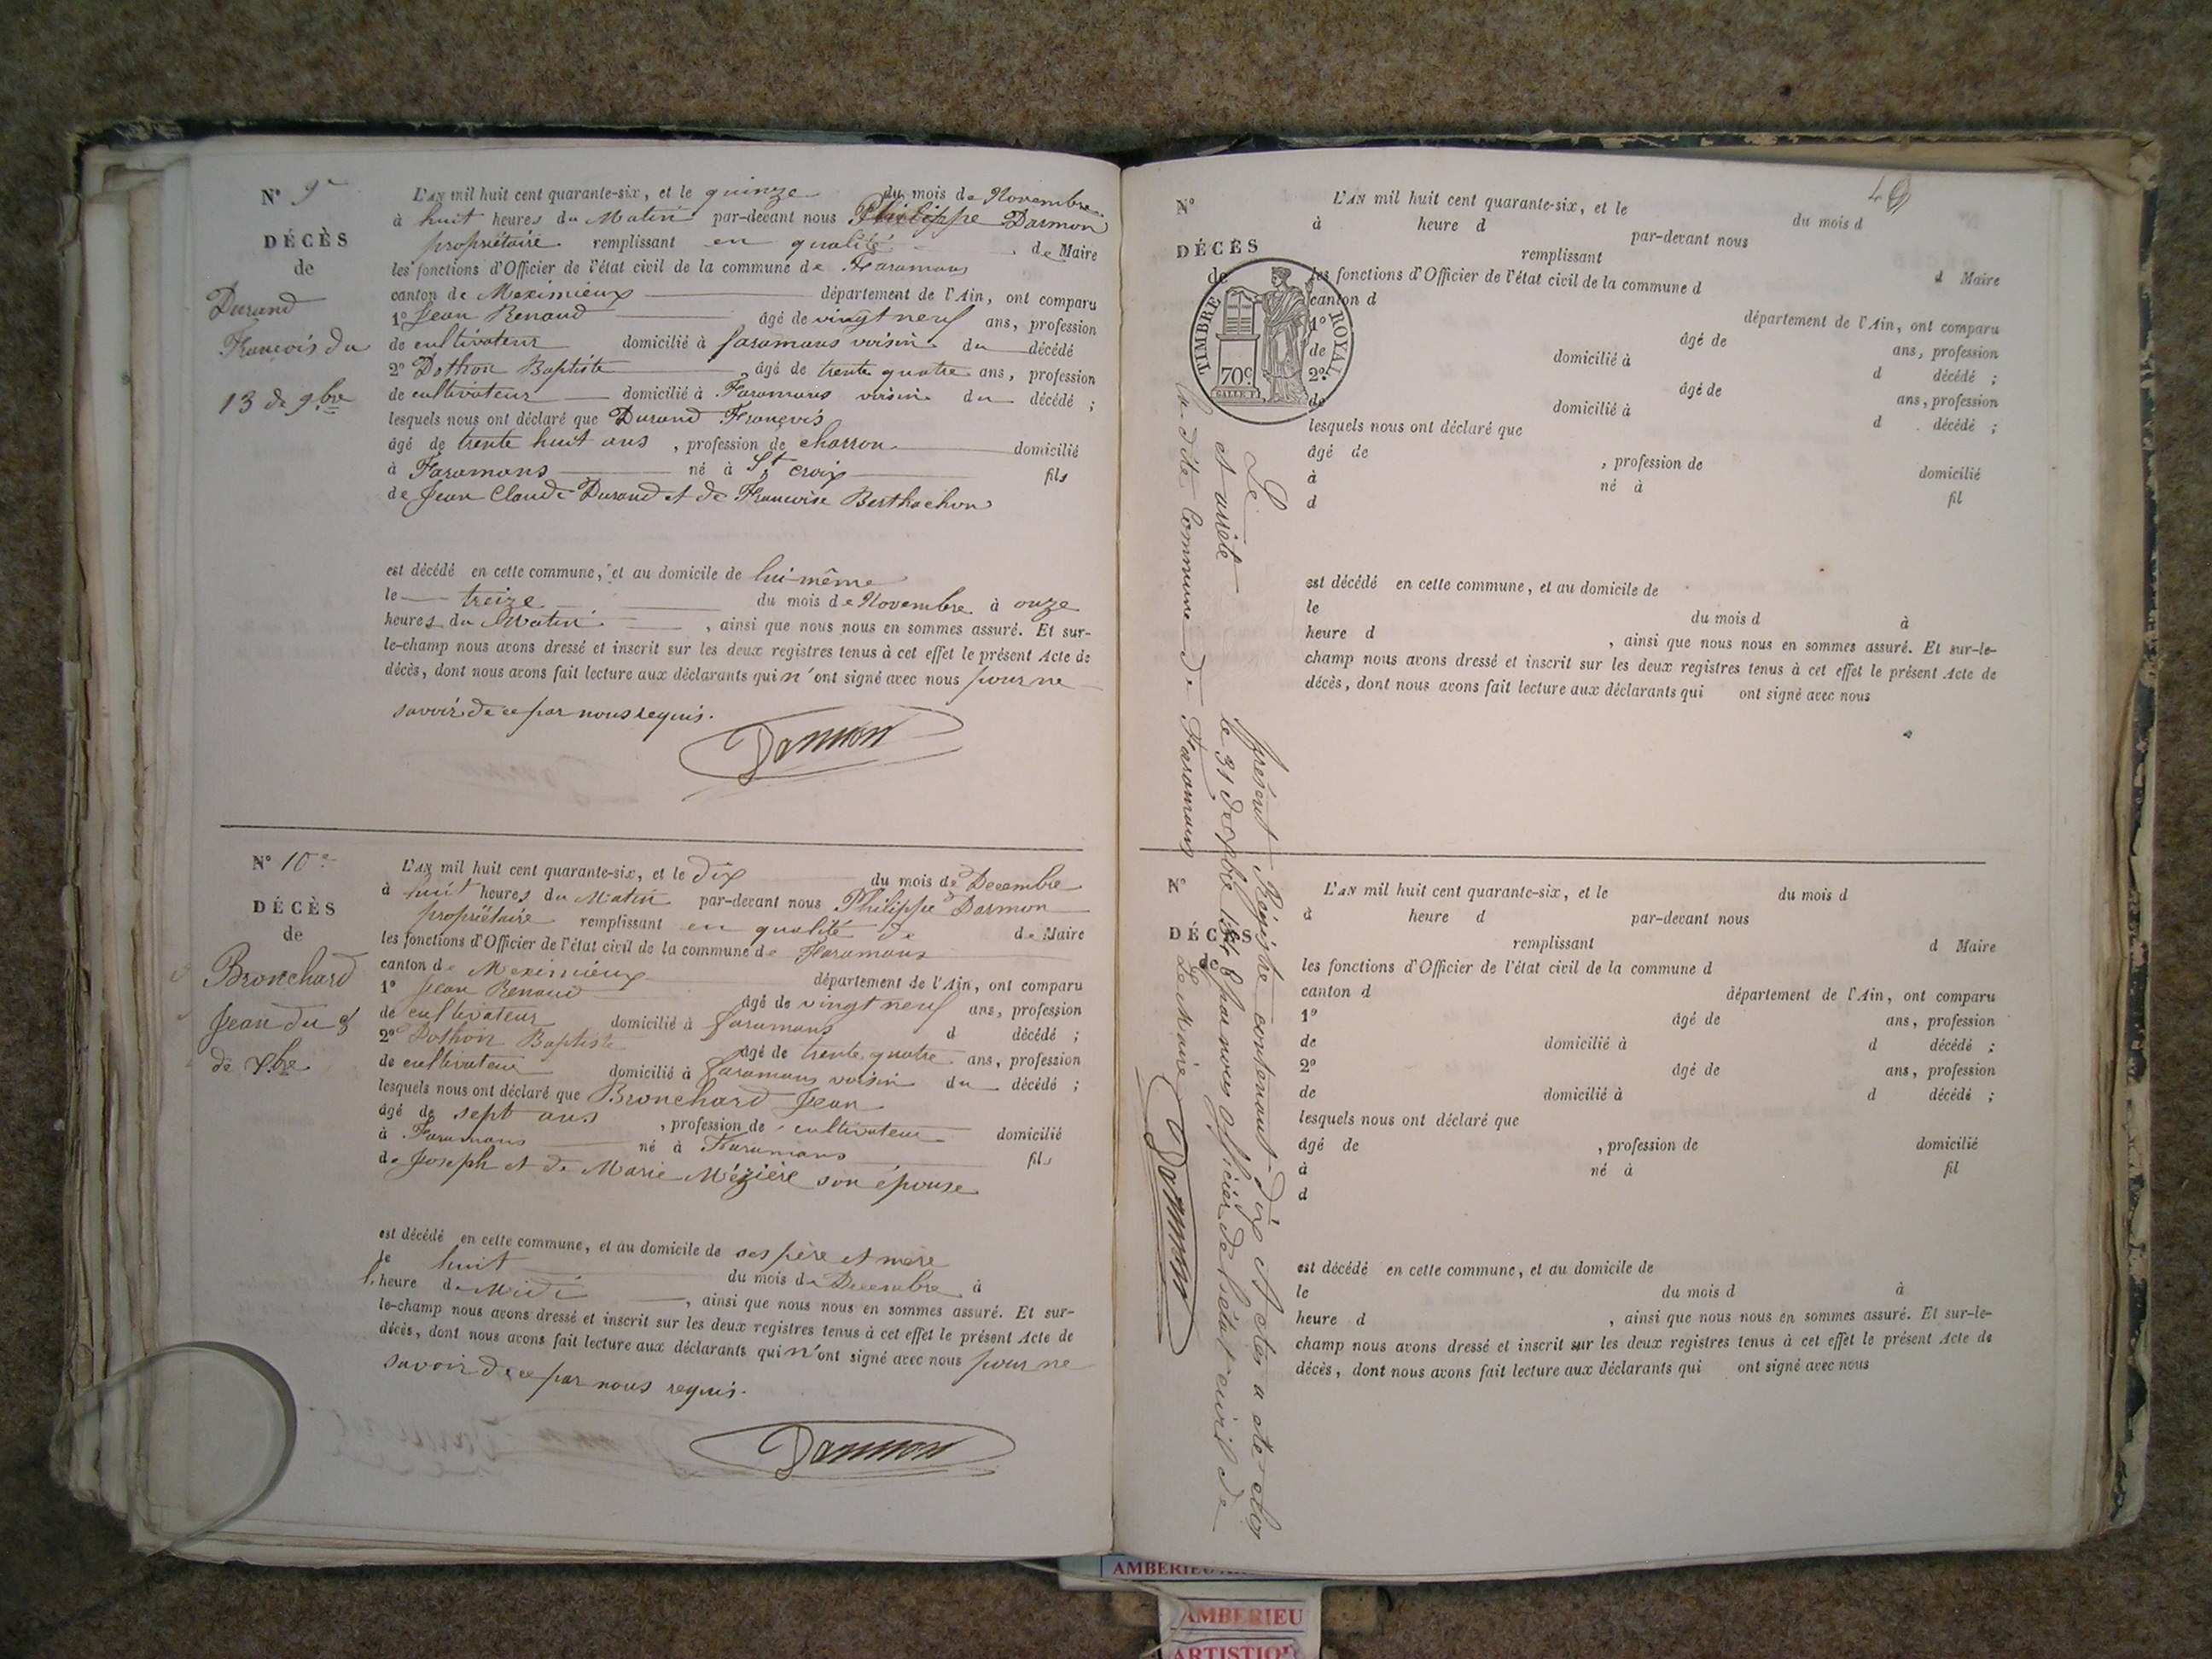 N° 9e
DÉCÈS
de
Durand
François du
13 de 9bre
L'AN mil huit cent quarante-six, et le quinze du mois de Novembre
à huit heures du Matin par-devant nous Philippe Darmon
propriétaire remplissant en qualité de Maire
les fonctions d'Officier de l'état civil de la commune de Faramans
canton de Meximieux département de l'Ain, ont comparu
1° Jean Renaud âgé de vingt neuf ans, profession
de cultivateur domicilié à faramans voisin du décédé
2° Dothon Baptiste âgé de trente quatre ans, profession
de cultivateur domicilié à Faramans voisin du décédé ;
lesquels nous ont déclaré que Durand François
âgé de trente huit ans , profession de charron domicilié
à Faramans né à St croix fils
de Jean Claude Durand et de Francoise Berthachon
est décédé en cette commune, et au domicile de lui même
le treize du mois de Novembre à onze
heures du Matin , ainsi que nous nous en sommes assuré. Et sur-
le-champ nous avons dressé et inscrit sur les deux registres tenus à cet effet le présent Acte de
décès, dont nous avons fait lecture aux déclarants qui n'ont signé avec nous pour ne
savoir de ce par nous requis.
Darmon
N° 10e
DÉCÈS
de
Bronchard
Jean du 8
de Xbre
L'AN mil huit cent quarante-six, et le dix du mois de Decembre
à huit heures du Matin par-devant nous Philippe Darmon
propriétaire remplissant en qualité de de Maire
les fonctions d'Officier de l'état civil de la commune de Faramans
canton de Meximieux département de l'Ain, ont comparu
1° Jean Renaud âgé de vingt neuf ans, profession
de cultivateur domicilié à faramans d décédé ;
2° Dothon Baptiste âgé de trente quatre ans, profession
de cultivateur domicilié à faramans voisin du décédé ;
lesquels nous ont déclaré que Bronchard Jean
âgé de sept ans , profession de cultivateur domicilié
à Faramans né à Faramans fils
de Joseph et de Marie Mézière son épouse
est décédé en cette commune, et au domicile de ses père et mère
le huit du mois de Decembre à
l'heure de Midi , ainsi que nous nous en sommes assuré. Et sur-
le-champ nous avons dressé et inscrit sur les deux registres tenus à cet effet le présent Acte de
décès, dont nous avons fait lecture aux déclarants qui n'ont signé avec nous pour ne
savoir de ce par nous requis.
Darmon
49
N°
DÉCÈS
de
TIMBRE ROYAL
70c
L'AN mil huit cent quarante-six, et le du mois d
à heure d par-devant nous
remplissant d Maire
les fonctions d'Officier de l'état civil de la commune d
canton d département de l'Ain, ont comparu
1° âgé de ans, profession
de domicilié à d décédé ;
2° âgé de ans, profession
de domicilié à d décédé ;
lesquels nous ont déclaré que
âgé de , profession de domicilié
à né à fil
d
est décédé en cette commune, et au domicile de
le du mois d à
heure d , ainsi que nous nous en sommes assuré. Et sur-le-
champ nous avons dressé et inscrit sur les deux registres tenus à cet effet le présent Acte de
décès, dont nous avons fait lecture aux déclarants qui ont signé avec nous
N°
DÉCÈS
de
L'AN mil huit cent quarante-six, et le du mois d
à heure d par-devant nous
remplissant d Maire
les fonctions d'Officier de l'état civil de la commune d
canton d département de l'Ain, ont comparu
1° âgé de ans, profession
de domicilié à d décédé ;
2° âgé de ans, profession
de domicilié à d décédé ;
lesquels nous ont déclaré que
âgé de , profession de domicilié
à né à fil
d
est décédé en cette commune, et au domicile de
le du mois d à
heure d , ainsi que nous nous en sommes assuré. Et sur-le-
champ nous avons dressé et inscrit sur les deux registres tenus à cet effet le présent Acte de
décès, dont nous avons fait lecture aux déclarants qui ont signé avec nous
Le présent Régistre contenant dix Actes a ete clos
et arrêté le 31 decembre 1846 par nous officier de l'état civil de
la dite Commune de Faramans Le Maire
Darmon
AMBERIEU
AMBERIEU
ARTISTIQ